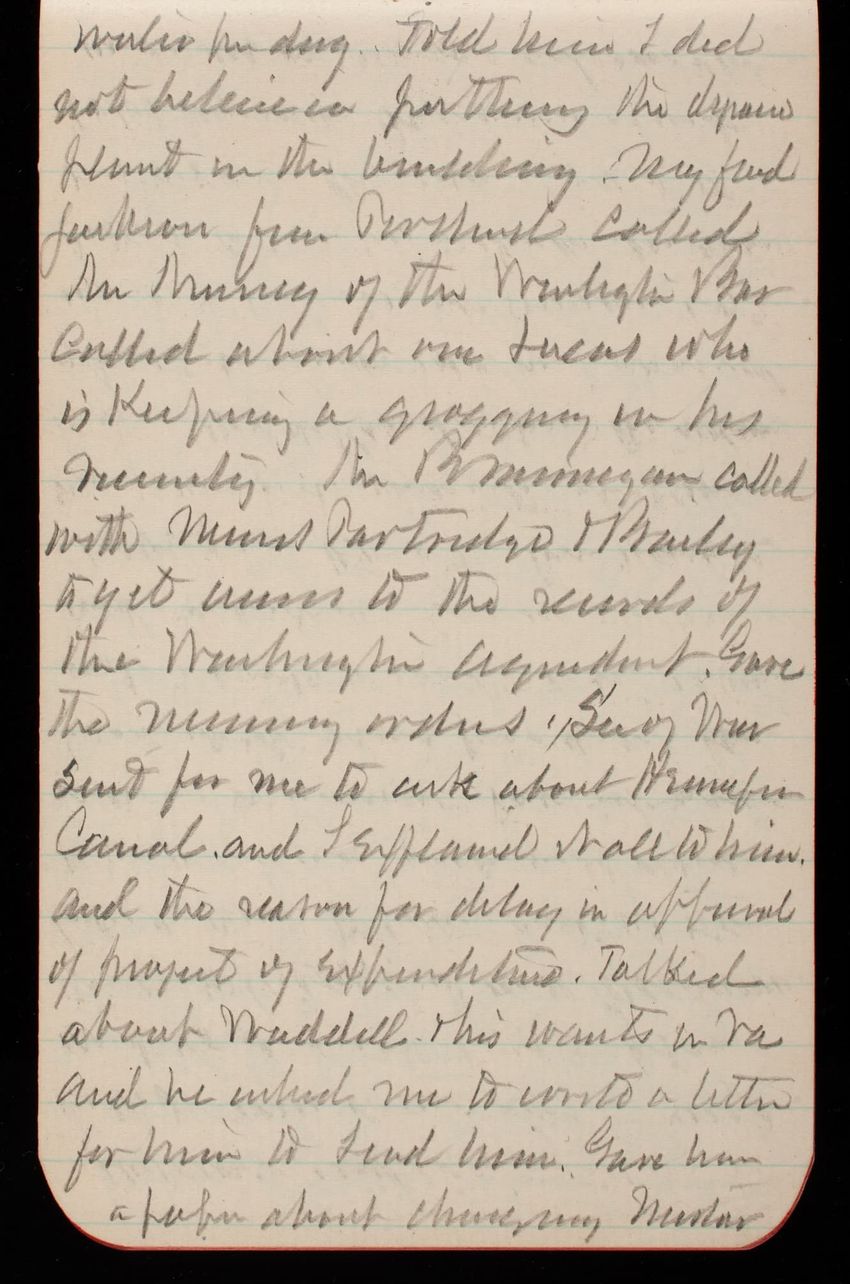 water per day. Told him I did
not believe in putting the
plant in the building. My friend
Jackson from called
Mr of the Washington Bar
called about one Lucas who
is Keeping a groggery in his
vicinity. Mr called
with Messrs Partridge & Bailey
to get access to the records of
the Washington aqueduct. Gave
the necessary orders. Sec of War
sent for me to ask about Hennepin
Canal. and I Explained it all to him.
and the reason for delay in approval
of project of Expenditure. Talked
about Waddell & his wants in Va
and he asked me to write a letter
for him to send him. Gave him
a paper about changing